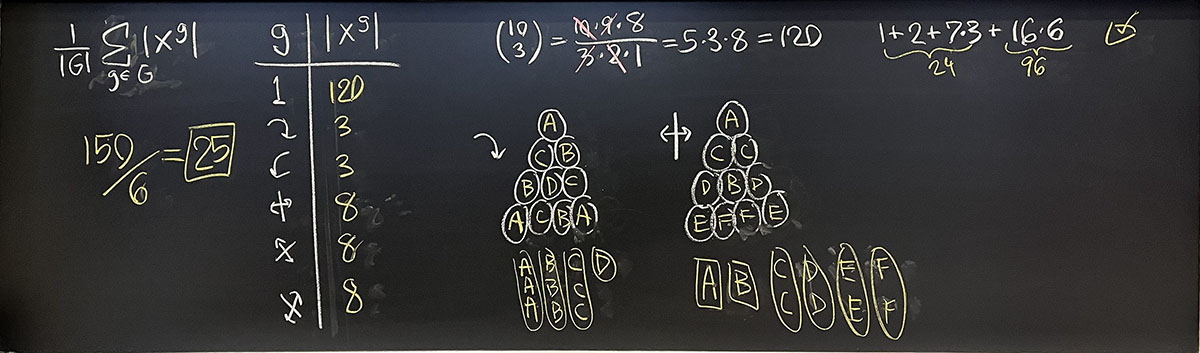 1/|G| Σ g∈G |X^g|
150/6 = 25
g |X^g|
1 120
⤵ 3
⤹ 3
↔ 8
⤡ 8
⤢ 8
(10 3) = 10·9·8 / 3·2·1 = 5·3·8 = 120
1+2+7·3 + 16·6
24 96
A
C B
B D C
A C B A
A B C D
A B C
A B C
A
C C
D B D
E F F E
A B C D E F
C D E F